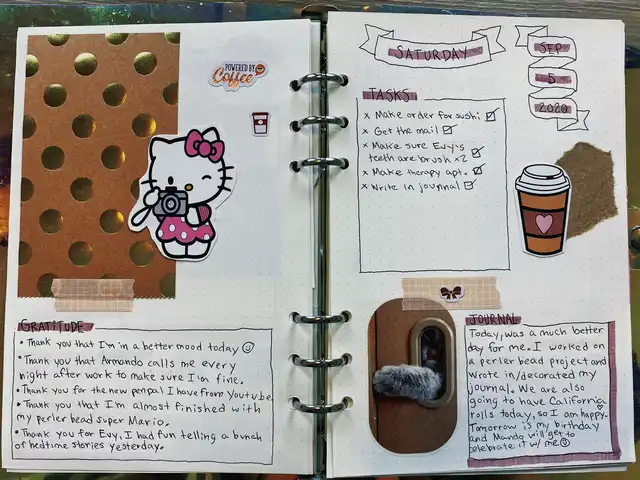 POWERED BY
Coffee
GRATITUDE
• Thank you that I'm in a better mood today ☺
• Thank you that Armando calls me every
night after work to make sure I'm fine.
• Thank you for the new penpal I have from Youtube.
• Thank you that I'm almost finished with
my perler bead super Mario.
• Thank you for Evy, I had fun telling a bunch
of bedtime stories yesterday.
SATURDAY
SEP
5
2020
TASKS
x Make order for sushi ☑
x Get the mail ☑
x Make sure Evy's
teeth are brush x2 ☑
x Make therapy apt. ☑
x Write in journal ☑
JOURNAL
Today, was a much better
day for me. I worked on
a perler bead project and
wrote in/decorated my
journal. We are also
going to have California
rolls today, so I am happy.
Tomorrow is my birthday
and Mando will get to
celebrate it w/ me ☺